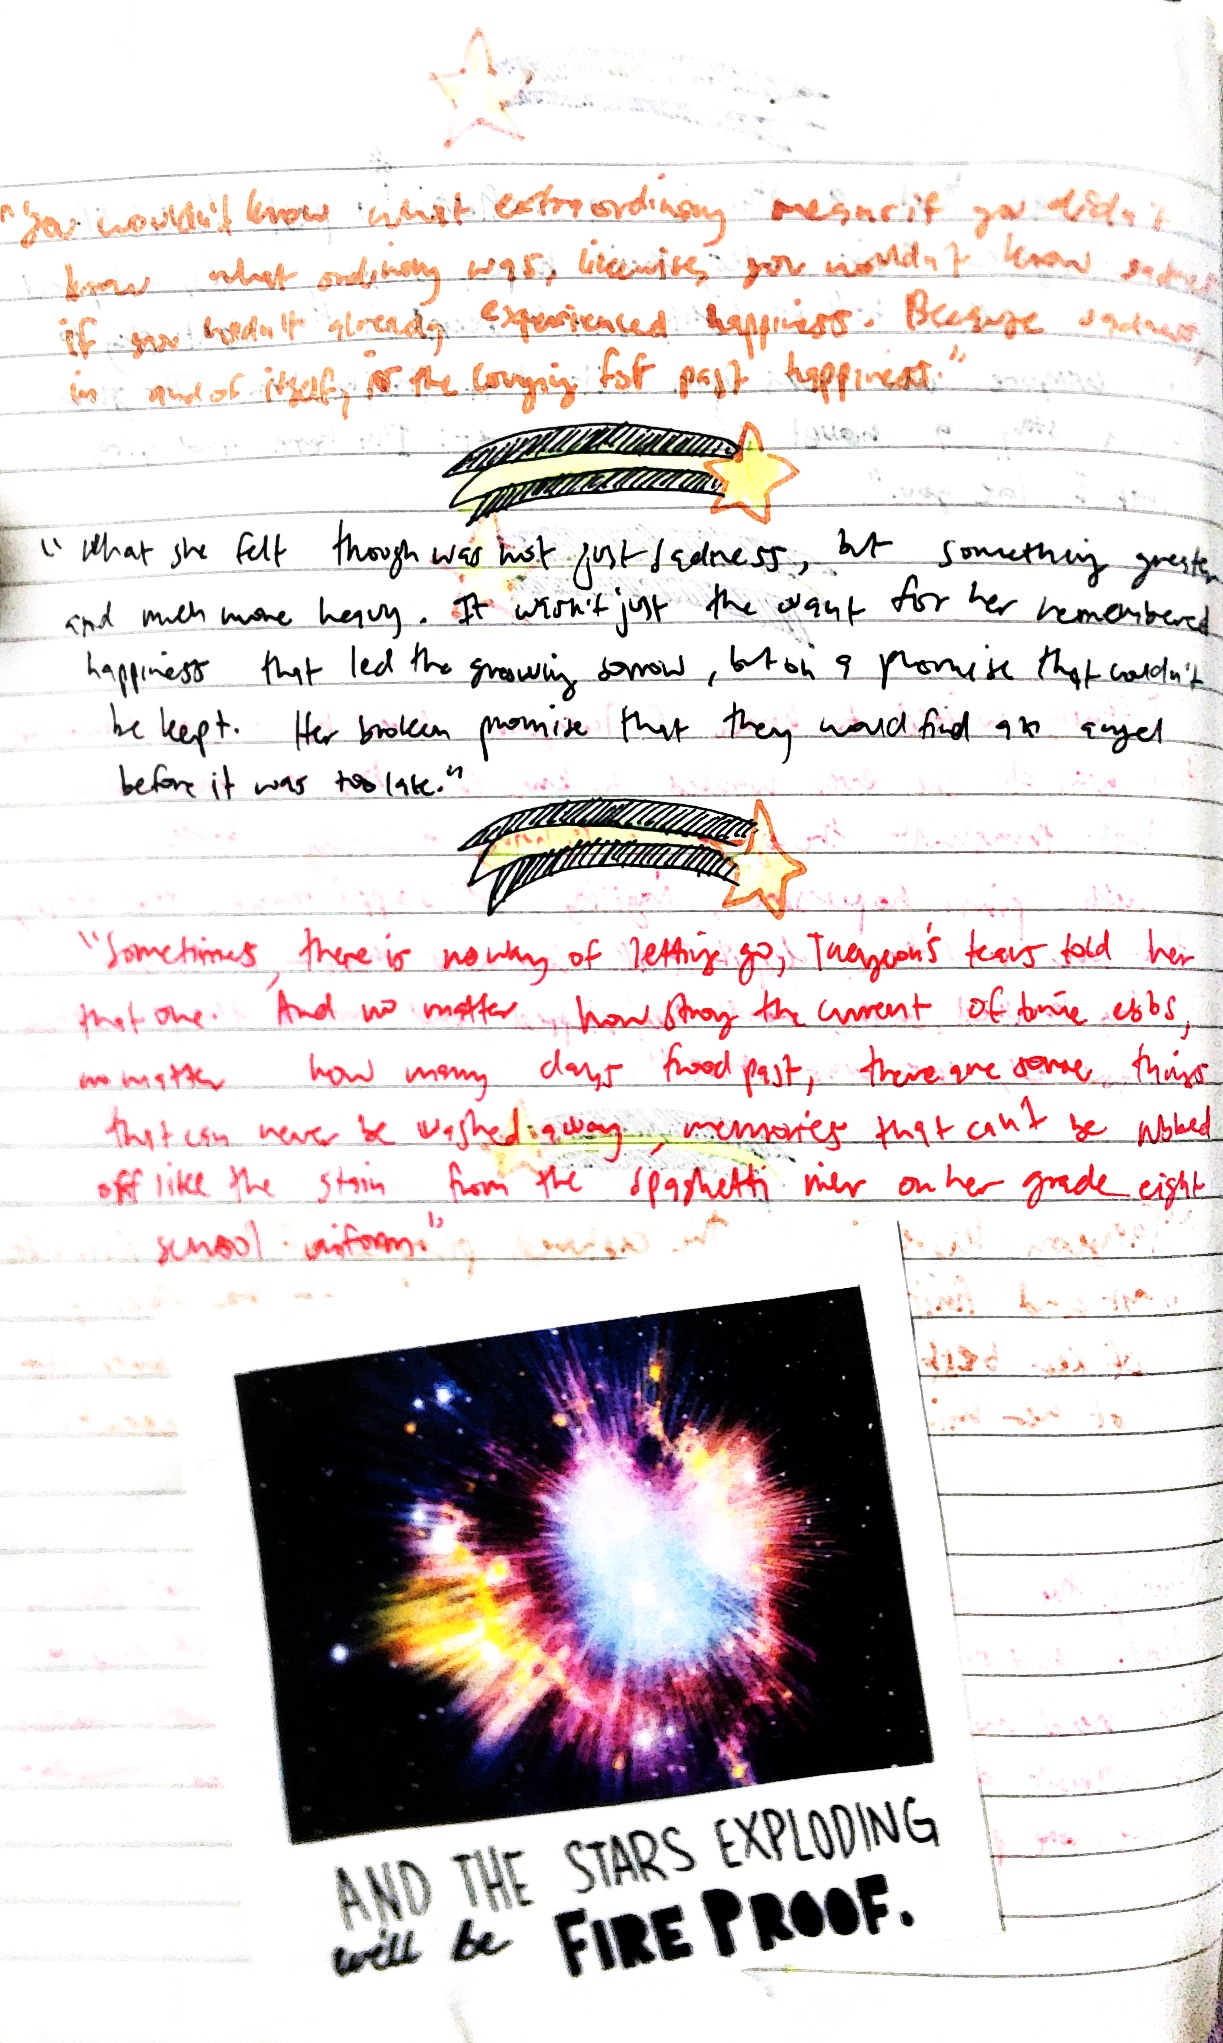 "You wouldn't know what extraordinary means if you didn't
know what ordinary was, likewise, you wouldn't know sadness
if you hadn't already experienced happiness. Because sadness,
in and of itself, is the longing for past happiness."
"What she felt though was not just sadness, but something greater
and much more heavy. It wasn't just the want for her remembered
happiness that led the growing sorrow, but on a promise that couldn't
be kept. Her broken promise that they would find an angel
before it was too late."
"Sometimes, there is no way of letting go, Taeyeon's tears told her
that one. And no matter how strong the current of time ebbs,
no matter how many days flood past, there are some things
that can never be washed away, memories that can't be rubbed
off like the stain from the spaghetti on her grade eight
school uniform"
AND THE STARS EXPLODING
will be FIRE PROOF.